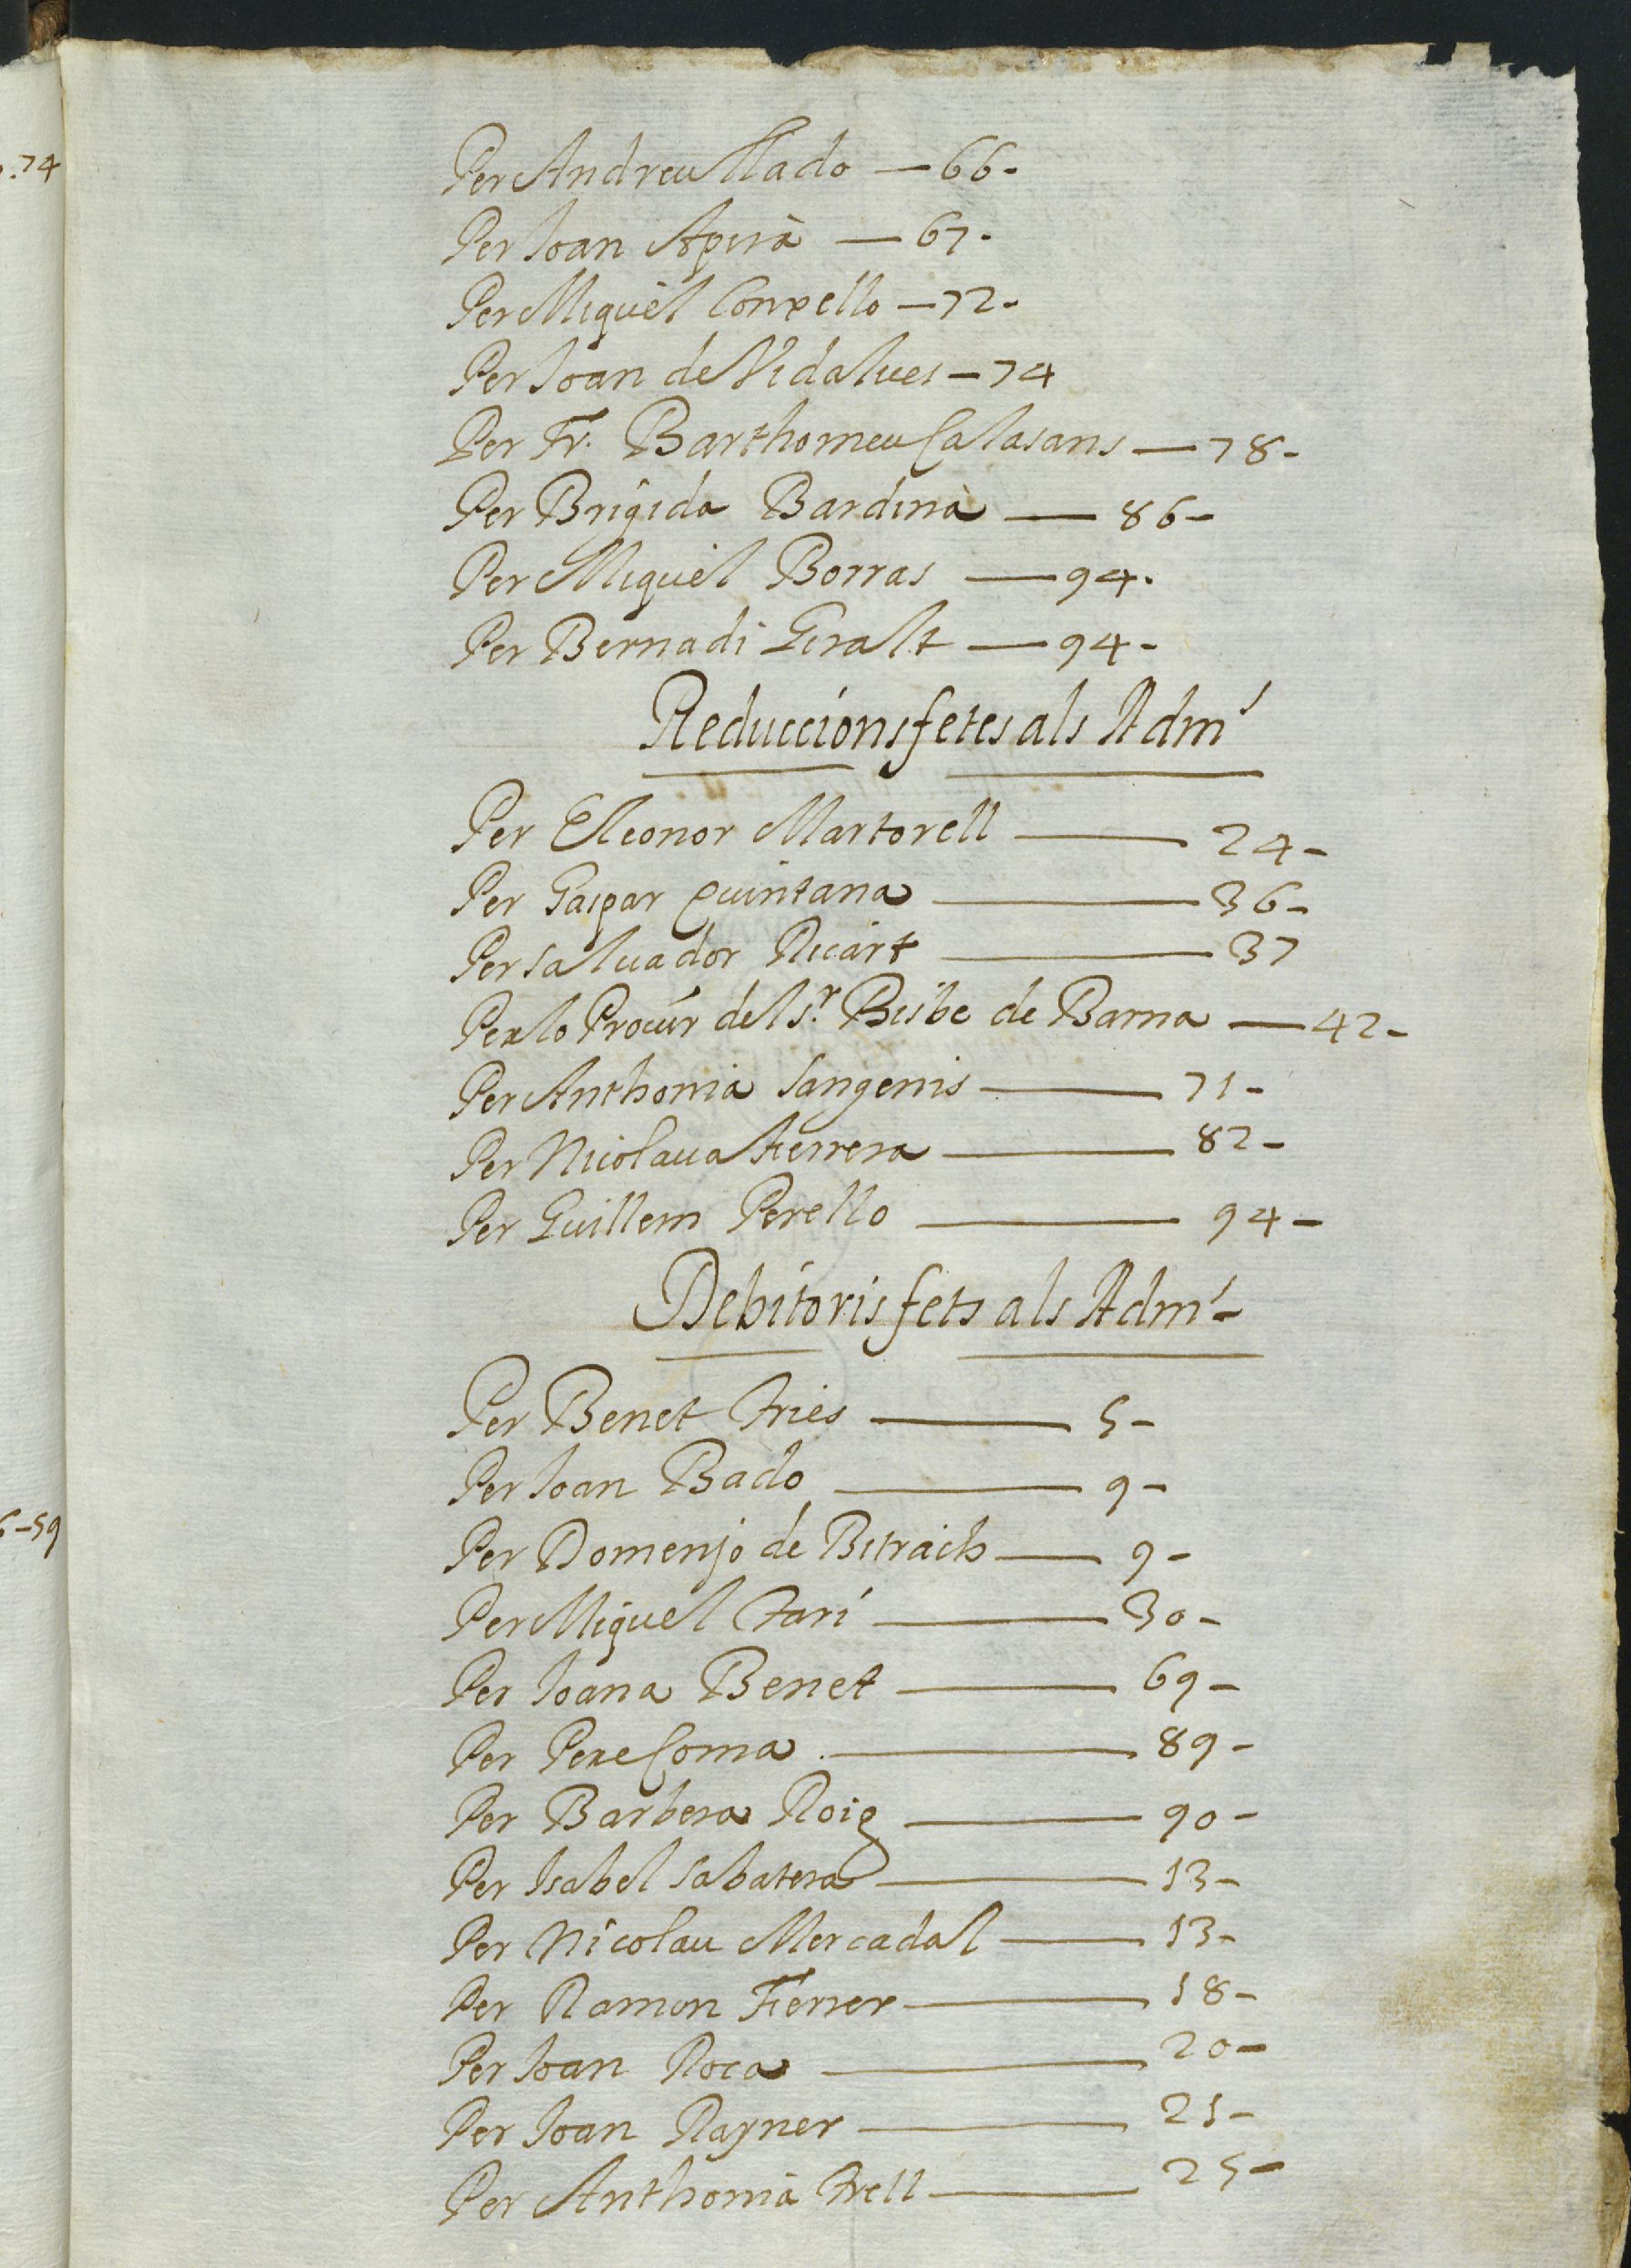 .74
Per Andreu Llado — 66-
Per Joan Apirà — 67-
Per Miquel Conxello — 72-
Per Joan de Vidalues — 74
Per Fr. Barthomeu Calasans — 78-
Per Brigida Bardina — 86-
Per Miquel Borras — 94.
Per Bernadi Giralt — 94-
Reduccions fetes als Adm
Per Eleonor Martorell — 24-
Per Gaspar Quintana — 36-
Per Saluador Ricart — 37
Per lo Procur del Sr. Bisbe de Barna — 42-
Per Anthonia Sangenis — 71-
Per Nicolaua Ferrera — 82-
Per Guillem Perello — 94-
Debitoris fets als Adm-
Per Benet Fries — 5-
Per Joan Bado — 9-
Per Domenjo de — 9-
6-59
Per Miquel Fari — 30-
Per Joana Benet — 69-
Per Pere Coma — 89-
Per Barbera Roig — 90-
Per Isabel Sabatera — 13-
Per Nicolau Mercadal — 13-
Per Ramon Ferrer — 18-
Per Joan Roca — 20-
Per Joan Rayner — 21-
Per Anthonia — 25-